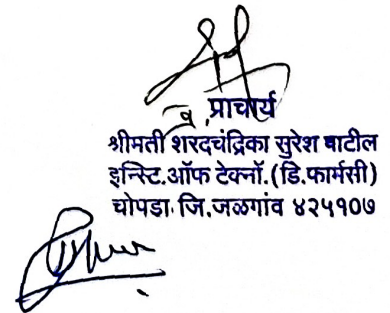 प्राचार्य
श्रीमती शरदचंद्रिका सुरेश पाटील
इन्स्टि.ऑफ टेक्नॉ.(डि.फार्मसी)
चोपडा. जि.जळगांव ४२५१०७